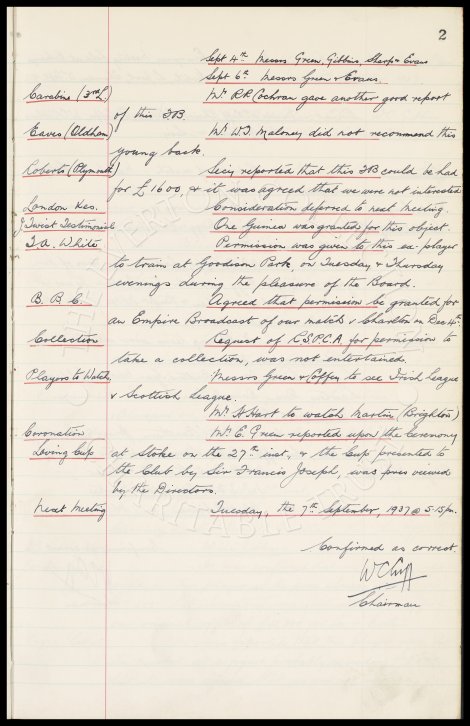 2
Sept 4th Messrs Green, Gibbins, Sharp & Evans
Sept 6th Messrs Green & Evans.
Carabine (3rd L.) Mr R.R. Cochran gave another good report
of this FB.
Eaves (Oldham) Mr W.J. Maloney did not recommend this
young back.
Roberts (Plymouth) Secy reported that this FB could be had
for £1600, & it was agreed that we were not interested
London Res. Consideration deferred to next meeting
J Twist Testimonial One Guinea was granted for this object.
T.A. White Permission was given to this ex-player
to train at Goodison Park, on Tuesday & Thursday
evenings during the pleasure of the Board.
B. B. C. Agreed that permission be granted for
an Empire Broadcast of our match v Charlton on Dec 4th.
Collection Request of R.S.P.C.A. for permission to
take a collection, was not entertained.
Players to Watch Messrs Green & Coffey to see Irish League
v Scottish League.
Mr H. Hart to watch Martin, (Brighton)
Coronation Mr E. Green reported upon the Ceremony
Loving Cup at Stoke on the 27th inst, & the Cup presented to
the Club by Sir Francis Joseph, was viewed
by the Directors.
Next Meeting Tuesday, the 7th September, 1937 @ 5-15pm.
Confirmed as correct.
W C Cuff
Chairman